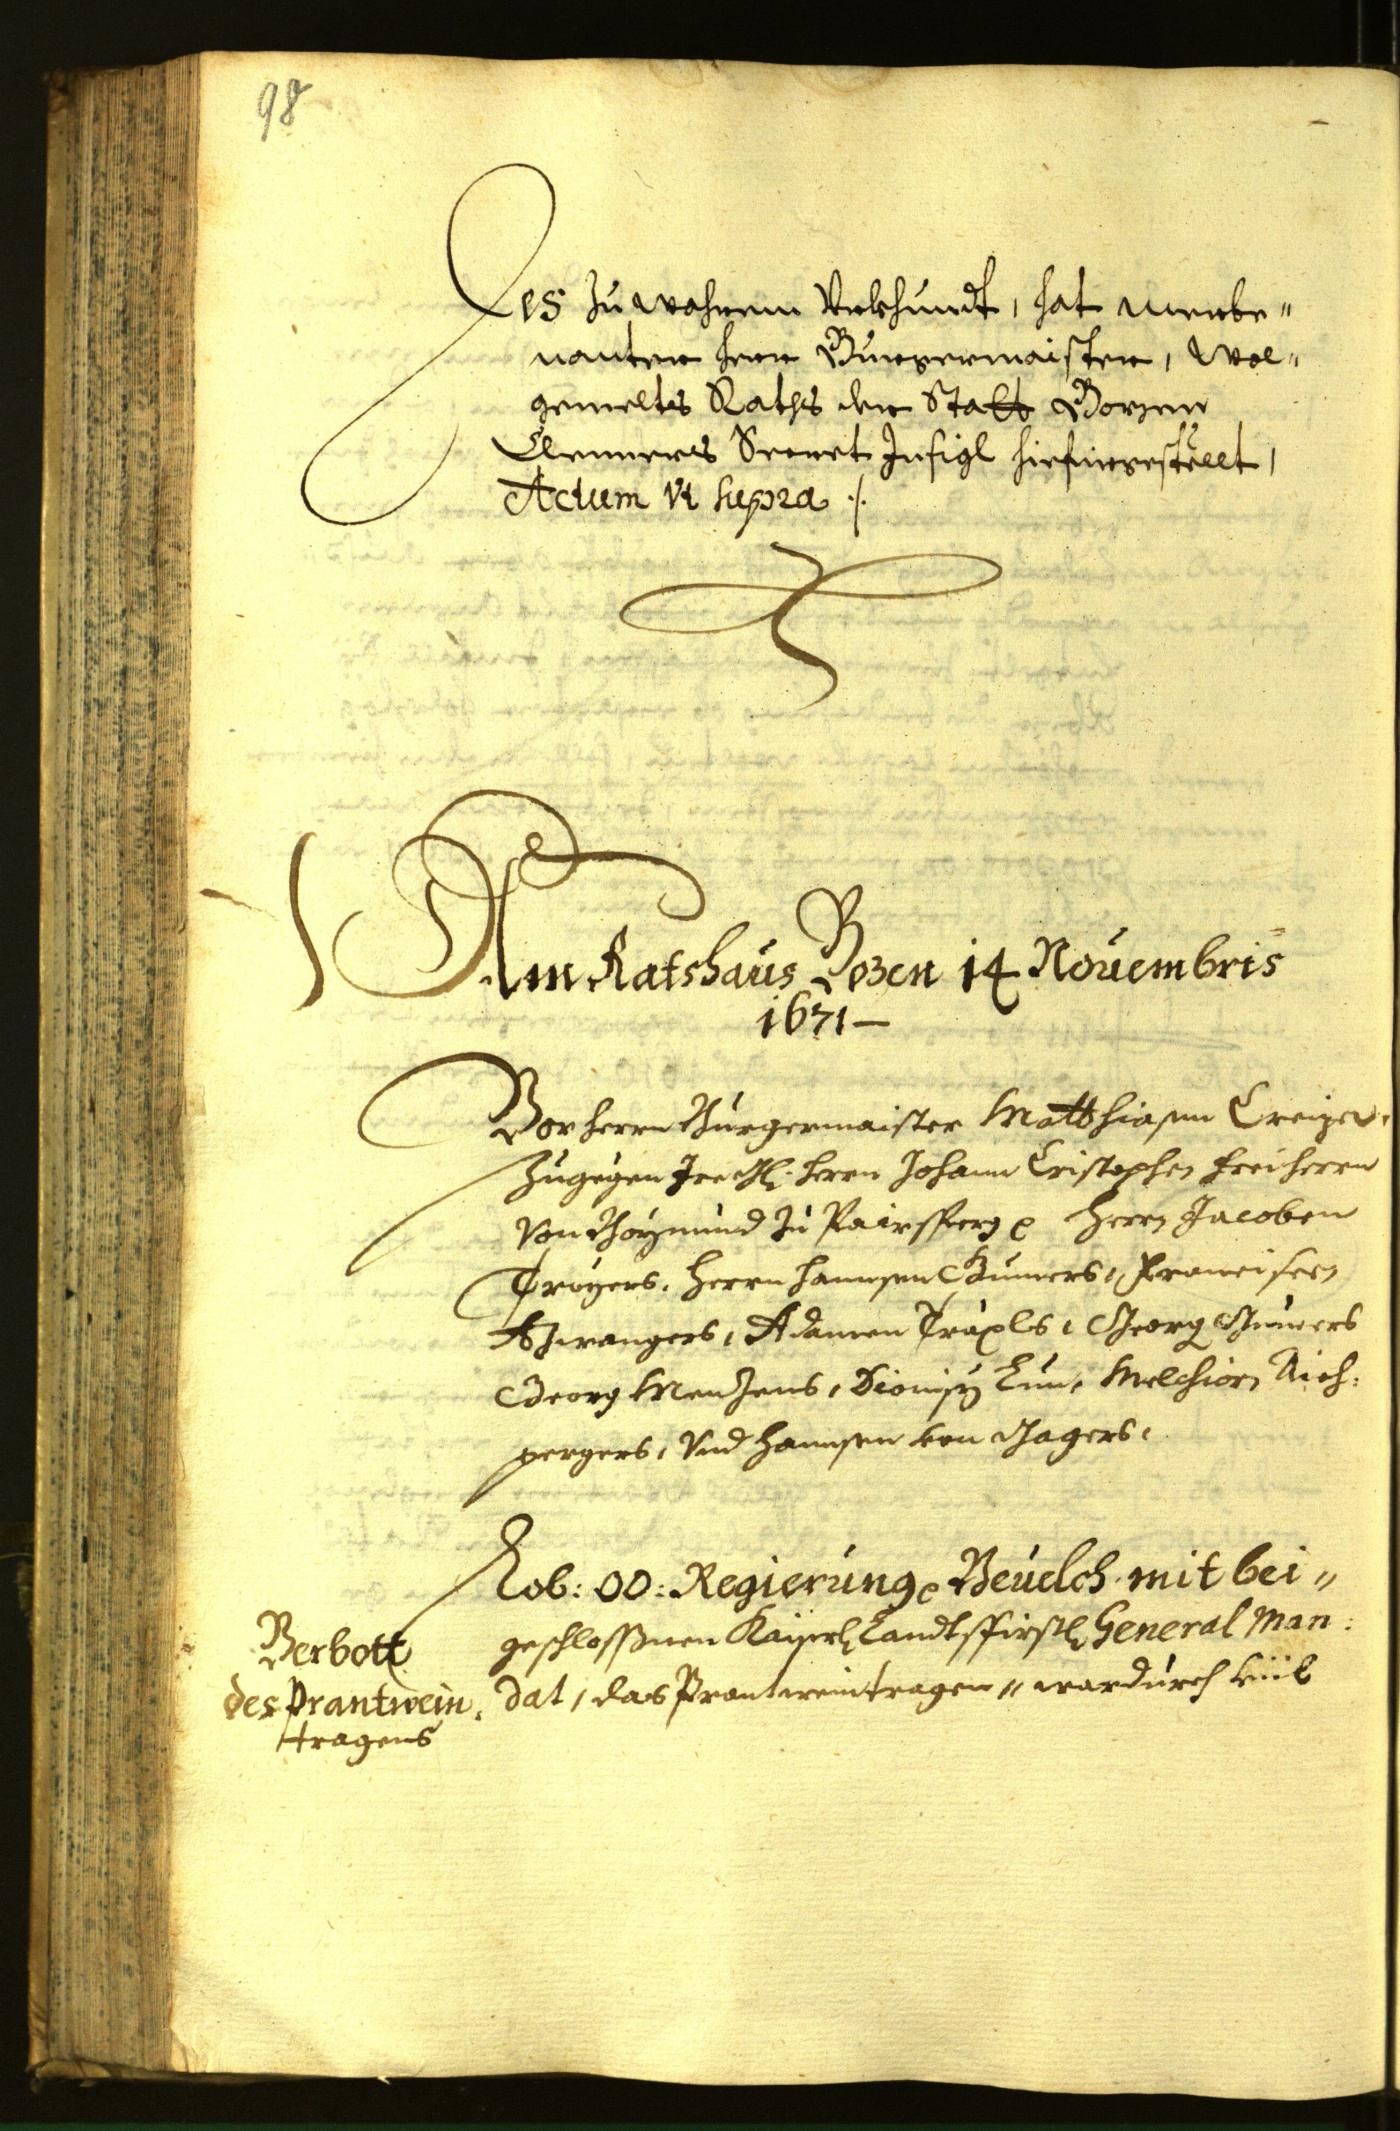 98
Des zu wahrem Vrkhundt, hat merbe"
nanter herr Burgermaister, Wol"
gemeltes Raths der Statt Bozen
Clenners Secret Insigl hiefürgestëllt,
Actum Vt supra ./.
Am Ratshaus Bozen 14 Nouembris
1671 —
Vor herrn Burgermaister Matthiasen
Zugegen herrn Johann Cristophen freiherrn
Von Zu Pairsperg herrn Jacoben
Troyers, herrn hannsen Gumers, Francisen
Adamen Träxls, Georg Gumers
Georg Menzens, Dionisy Lun, Melchiorn Aich:
pergers, Vnd hannsen von Jagers,
Lob: OO: Regierung Beuelch mit bei"
geschlossnen Kaiserl Landtsfirstl General Man:
dat, das Prantweintragen" wardurch
Verbott
des Prantwein,
tragens